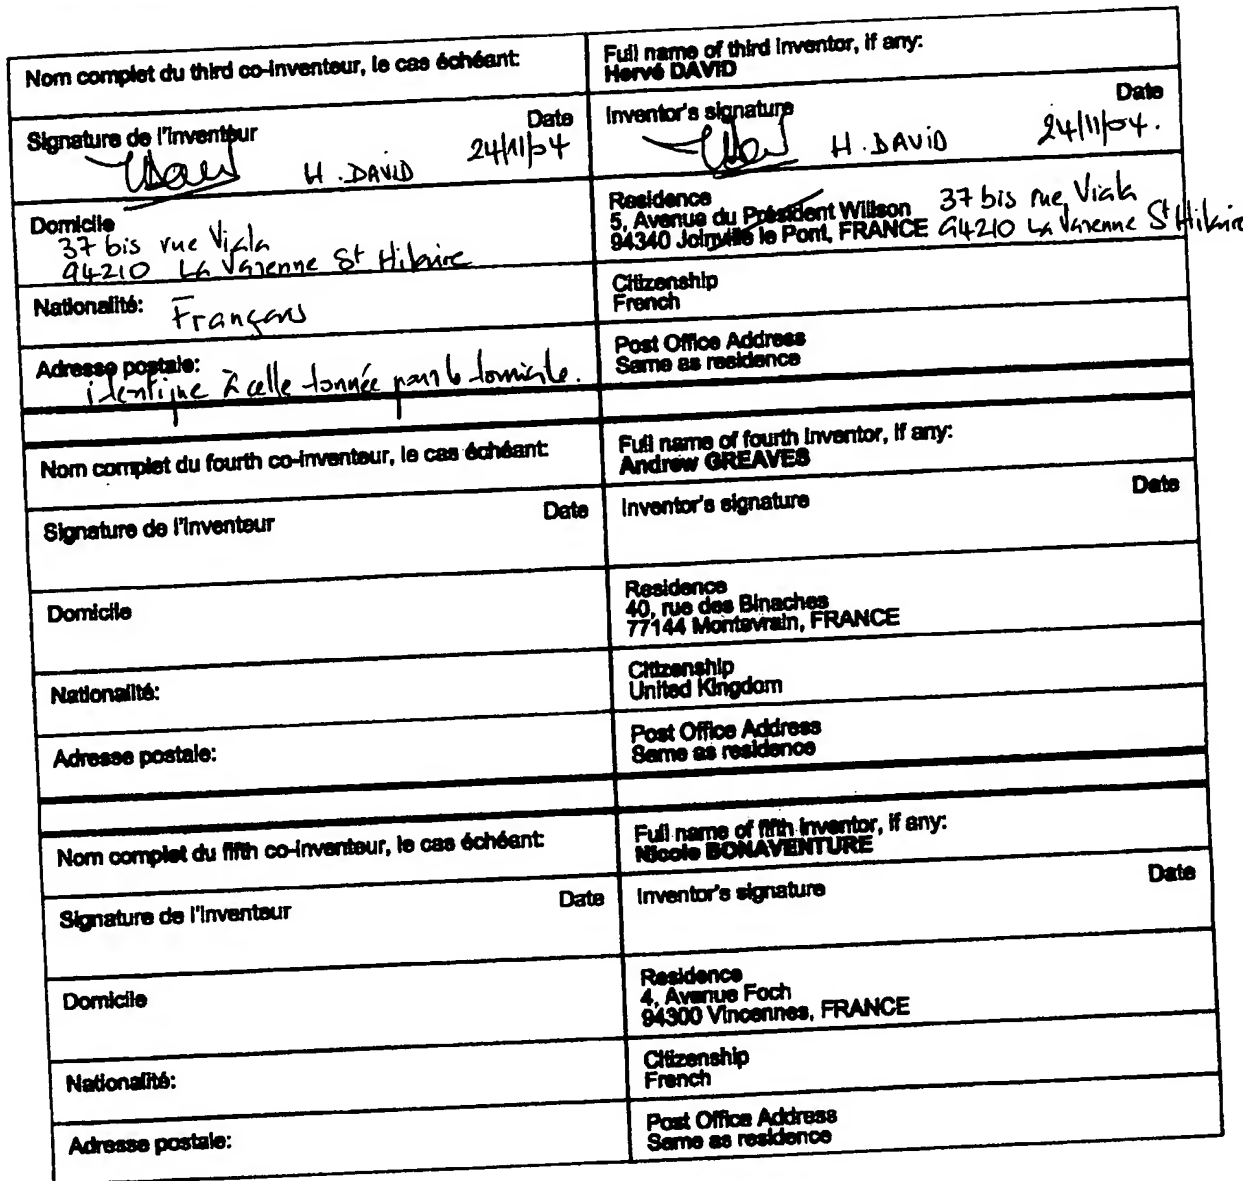 Nom complet du third co-inventeur, le cas échéant:
Full name of third inventor, if any:
Hervé DAVID
Signature de l'inventeur Date
H. DAVID 24/11/04
Inventor's signature Date
H. DAVID 24/11/04.
Domicile
37 bis rue Viala
94210 La Varenne St Hilaire
Residence
5, Avenue du Président Willson 37 bis rue Viala
94340 Joinville le Pont, FRANCE 94210 La Varenne St Hilaire
Nationalité: Français
Citizenship
French
Adresse postale:
identique à celle donnée pour le domicile.
Post Office Address
Same as residence
Nom complet du fourth co-inventeur, le cas échéant:
Full name of fourth inventor, if any:
Andrew GREAVES
Signature de l'inventeur Date
Inventor's signature Date
Domicile
Residence
40, rue des Binaches
77144 Montevrain, FRANCE
Nationalité:
Citizenship
United Kingdom
Adresse postale:
Post Office Address
Same as residence
Nom complet du fifth co-inventeur, le cas échéant:
Full name of fifth inventor, if any:
Nicole BONAVENTURE
Signature de l'inventeur Date
Inventor's signature Date
Domicile
Residence
4, Avenue Foch
94300 Vincennes, FRANCE
Nationalité:
Citizenship
French
Adresse postale:
Post Office Address
Same as residence